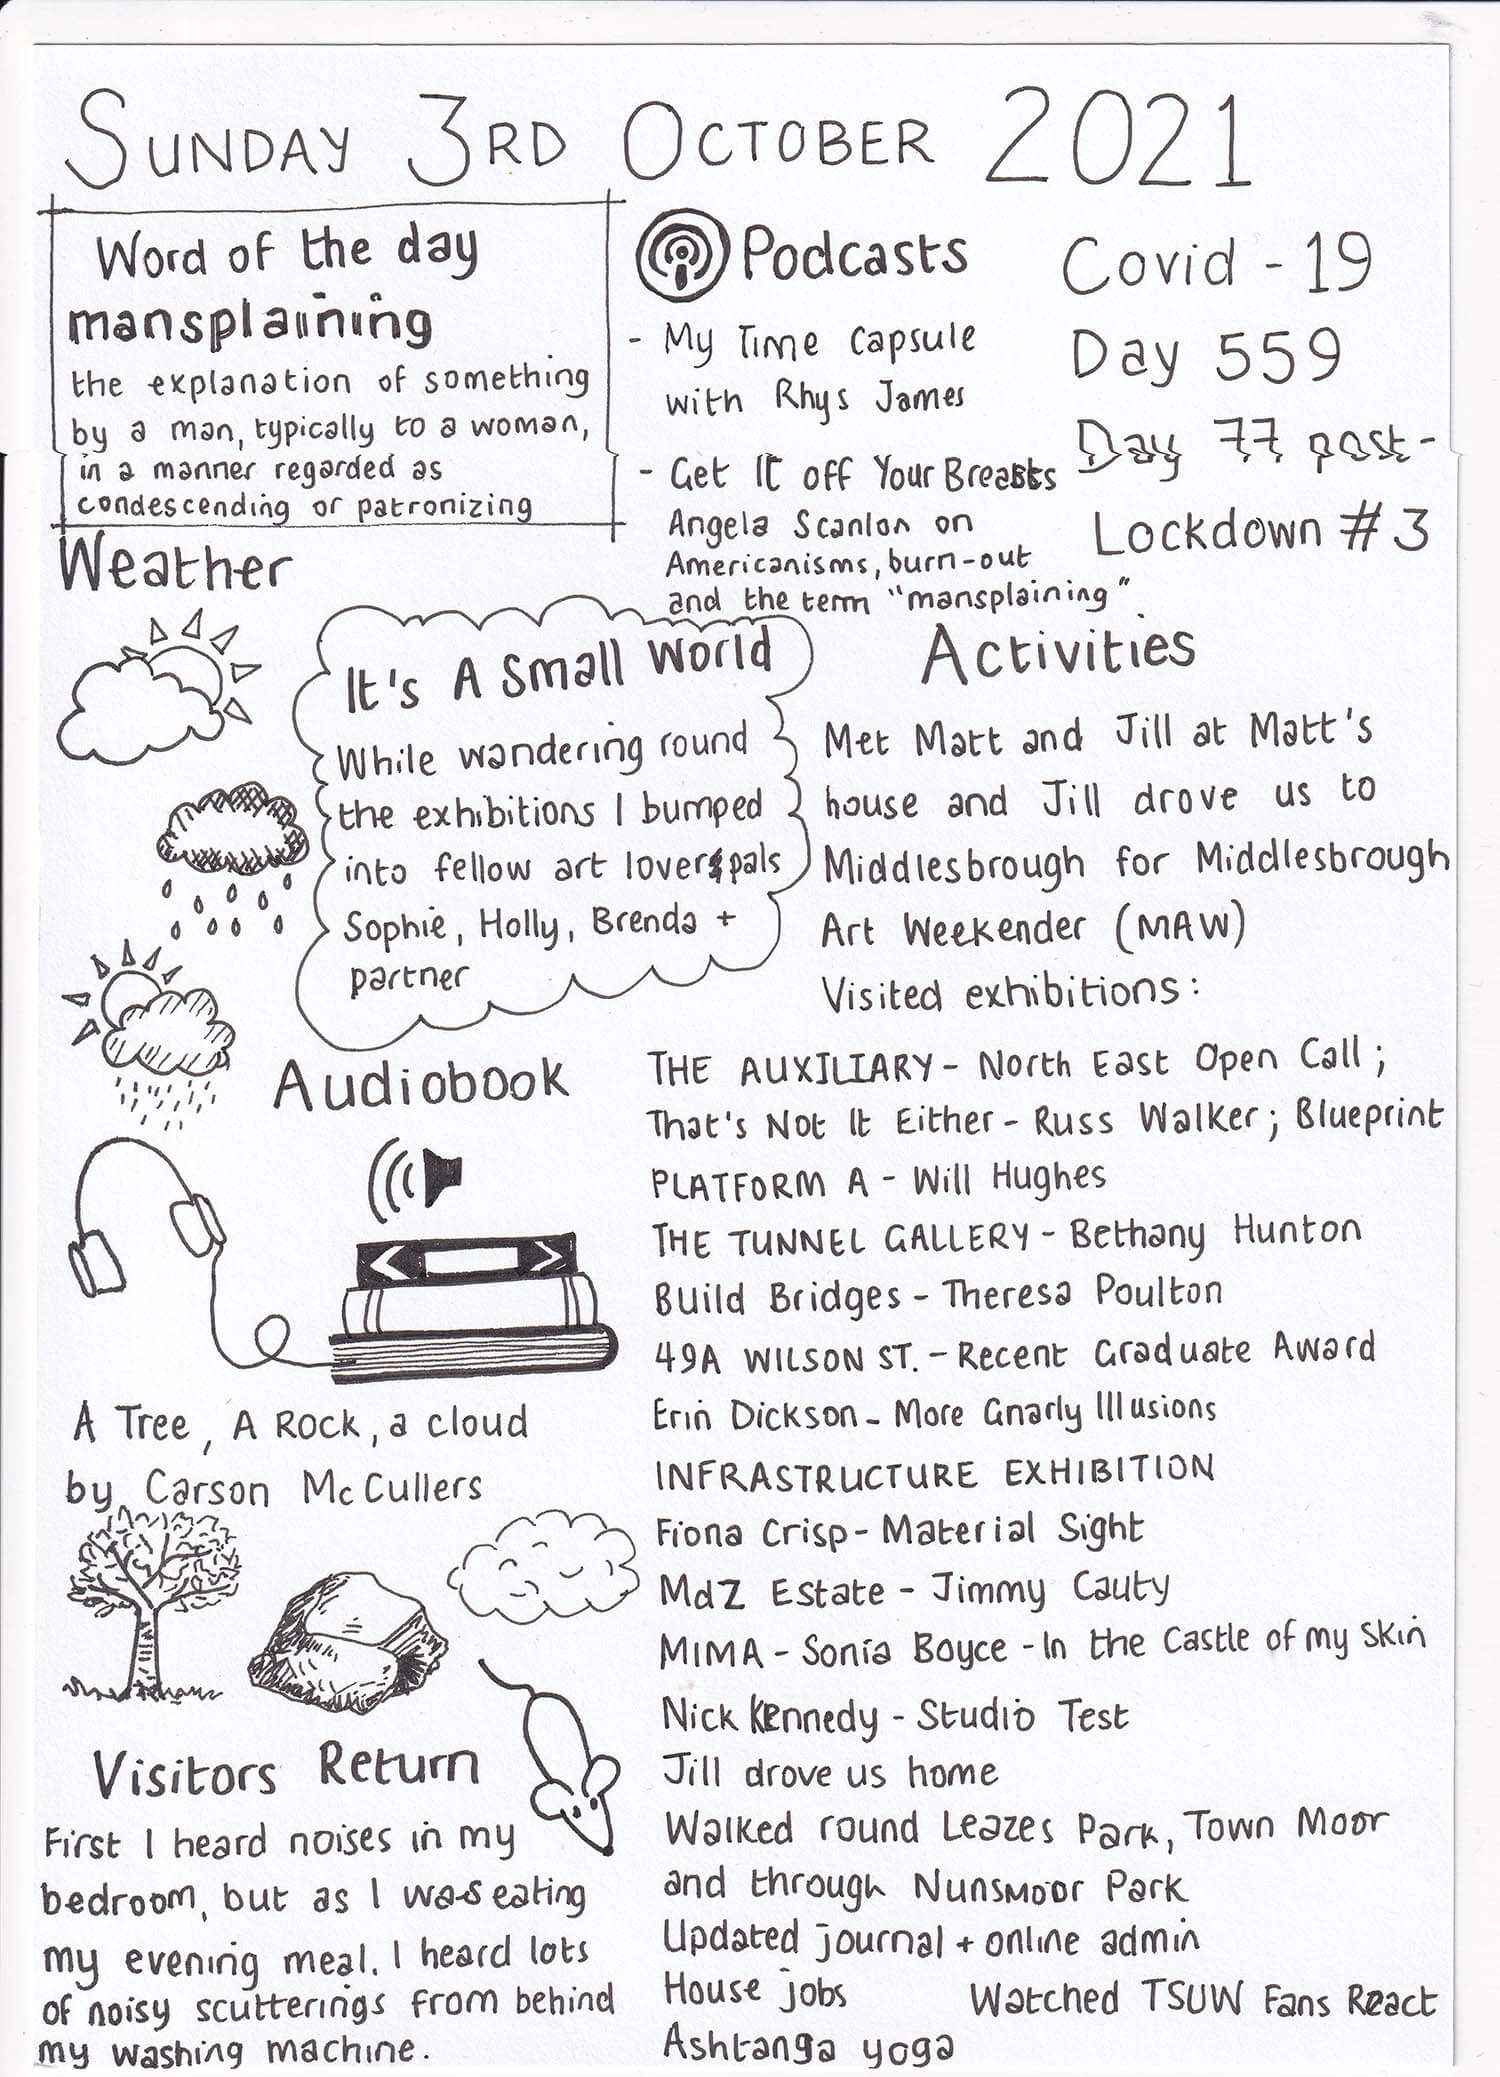 SUNDAY 3RD OCTOBER 2021
Word of the day
mansplaining
the explanation of something
by a man, typically to a woman,
in a manner regarded as
condescending or patronizing
Podcasts
- My Time Capsule
with Rhys James
- Get It off Your Breasts
Angela Scanlon on
Americanisms, burn-out
and the term "mansplaining".
Covid - 19
Day 559
Day 77 post-
Lockdown #3
Weather
It's A Small World
While wandering round
the exhibitions I bumped
into fellow art lover pals
Sophie, Holly, Brenda +
partner
Activities
Met Matt and Jill at Matt's
house and Jill drove us to
Middlesbrough for Middlesbrough
Art Weekender (MAW)
Visited exhibitions:
THE AUXILIARY - North East Open Call;
That's Not It Either - Russ Walker; Blueprint
PLATFORM A - Will Hughes
THE TUNNEL GALLERY - Bethany Hunton
Build Bridges - Theresa Poulton
49A WILSON ST. - Recent Graduate Award
Erin Dickson - More Gnarly Illusions
INFRASTRUCTURE EXHIBITION
Fiona Crisp - Material Sight
MdZ Estate - Jimmy Cauty
MIMA - Sonia Boyce - In the Castle of my Skin
Nick Kennedy - Studio Test
Jill drove us home
Walked round Leazes Park, Town Moor
and through Nunsmoor Park
Updated journal + online admin
House jobs Watched TSUW Fans React
Ashtanga yoga
Audiobook
A Tree, A Rock, a cloud
by Carson McCullers
Visitors Return
First I heard noises in my
bedroom, but as I was eating
my evening meal. I heard lots
of noisy scutterings from behind
my washing machine.